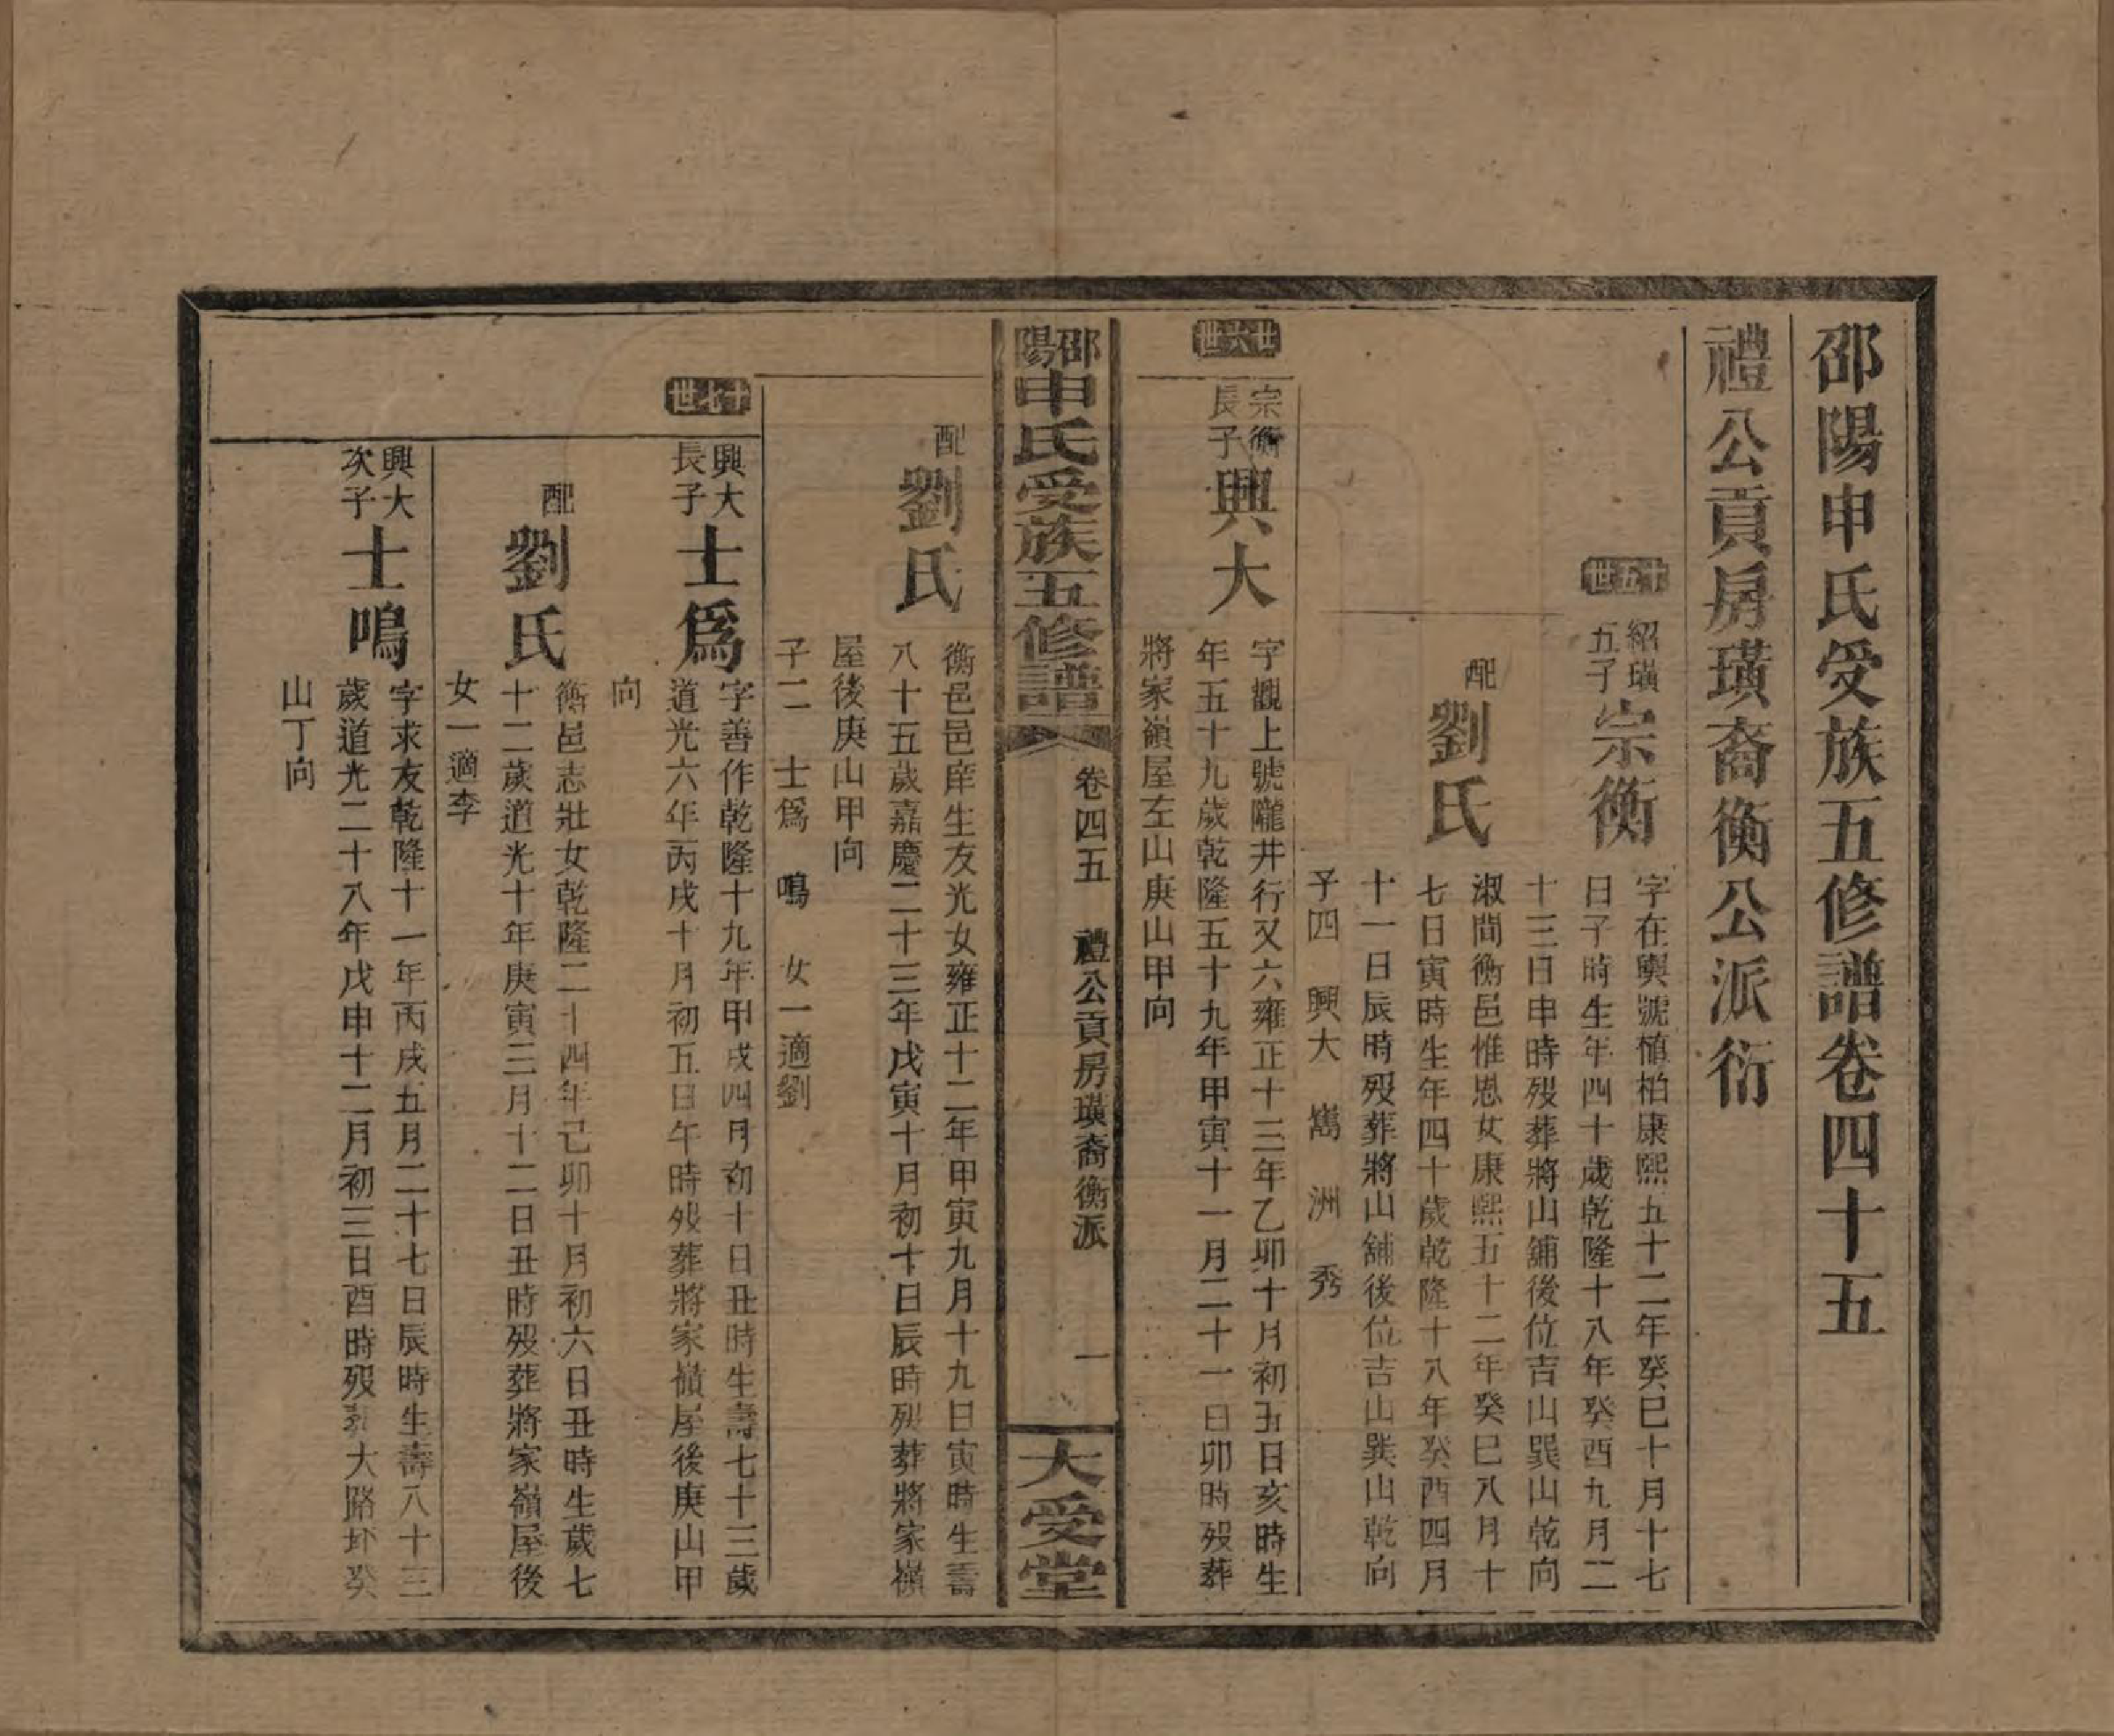 邵陽申氏受族五修譜卷四十五
禮公貢房璜裔衡公派衍
十五世
紹璜
五子
宗衡
字在輿號植柏康熙五十二年癸巳十月十七
日子時生年四十歲乾隆十八年癸酉九月二
十三日申時歿葬將山舖後位吉山巽山乾向
配
劉氏
淑閒衡邑惟恩女康熙五十二年癸巳八月十
七日寅時生年四十歲乾隆十八年癸酉四月
十一日辰時歿葬將山舖後位吉山巽山乾向
子四 興大 雋 洲 秀
十六世
宗衡
長子
興大
字觀上號隴井行又六雍正十三年乙卯十月初五日亥時生
年五十九歲乾隆五十九年甲寅十一月二十一日卯時歿葬
將家嶺屋左山庚山甲向
邵陽申氏受族五修譜
卷四五 禮公貢房璜裔衡派
一
大受堂
配
劉氏
衡邑邑庠生友光女雍正十二年甲寅九月十九日寅時生壽
八十五歲嘉慶二十三年戊寅十月初十日辰時歿葬將家嶺
屋後庚山甲向
子二 士爲 鳴 女一適劉
十七世
興大
長子
士爲
字善作乾隆十九年甲戌四月初十日丑時生壽七十三歲
道光六年丙戌十月初五日午時歿葬將家嶺屋後庚山甲
向
配
劉氏
衡邑志壯女乾隆二十四年己卯十月初六日丑時生歲七
十二歲道光十年庚寅三月十二日丑時歿葬將家嶺屋後
女一適李
興大
次子
士鳴
字求友乾隆十一年丙戌五月二十七日辰時生壽八十三
歲道光二十八年戊申十二月初三日酉時歿葬大路坏癸
山丁向